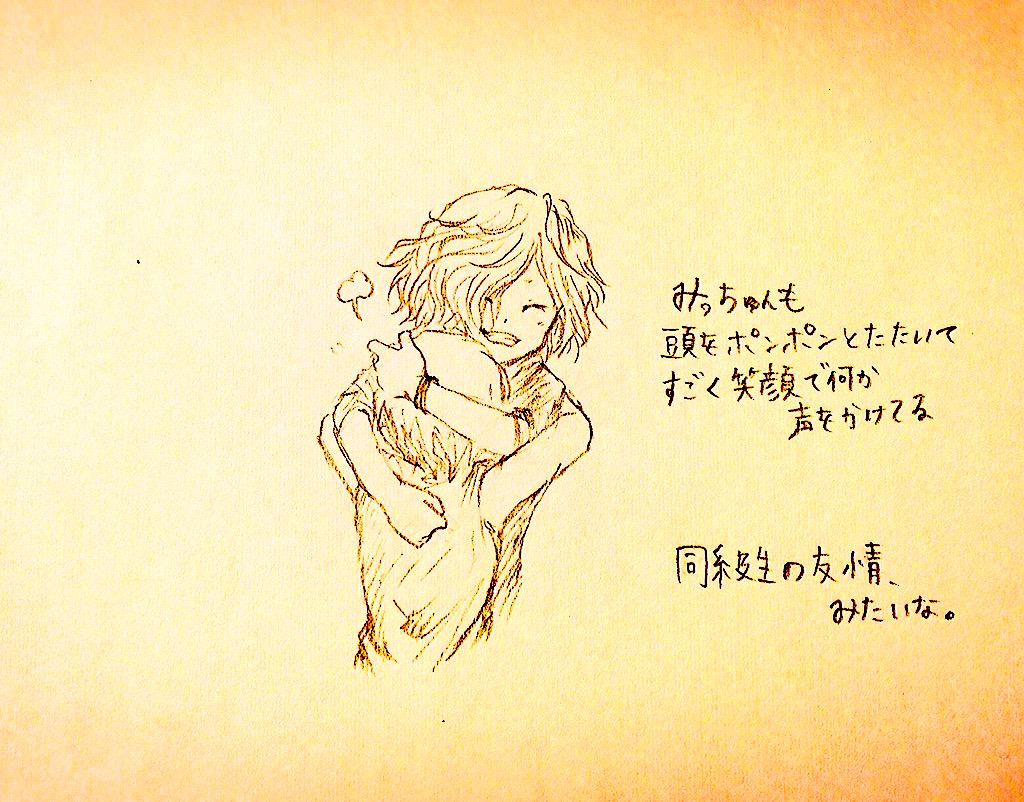 みっちゅんも
頭をポンポンとたたいて
すごく笑顔で何か
声をかけてる
同級生の友情、
みたいな。